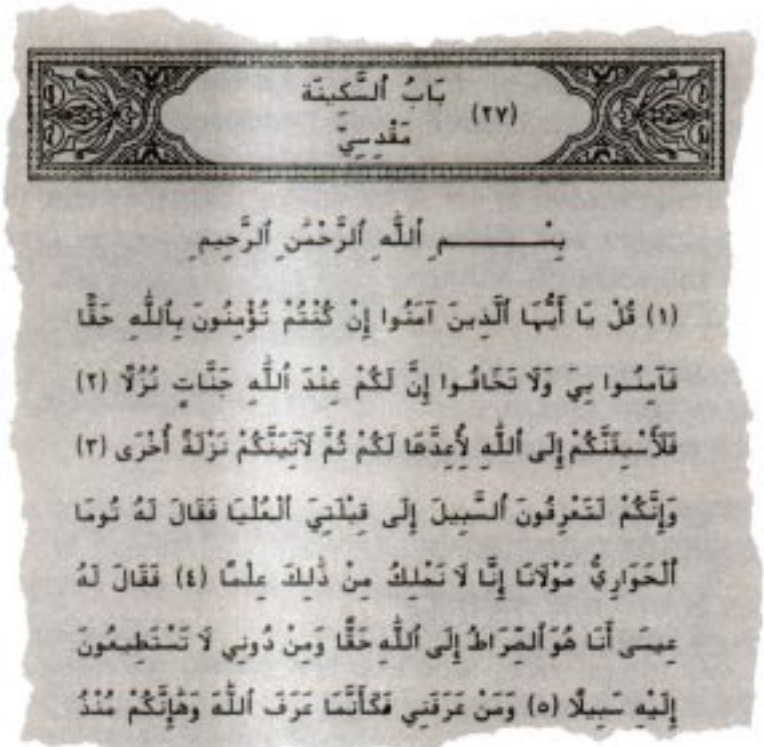 بَابُ ٱلسَّكِينَة
(٢٧)
مَقْدِسِيّ
بِسْــــــمِ ٱللَّهِ ٱلرَّحْمَٰنِ ٱلرَّحِيمِ
(١) قُلْ يَا أَيُّهَا ٱلَّذِينَ آمَنُوا إِنْ كُنْتُمْ تُؤْمِنُونَ بِٱللَّهِ حَقًّا
فَآمِنُـوا بِيَ وَلَا تَخَافُـوا إِنَّ لَكُمْ عِنْدَ ٱللَّهِ جَنَّاتٍ نُزُلًا (٢)
فَلَأَسْبِقَنَّكُمْ إِلَى ٱللَّهِ لِأُعِدَّهَا لَكُمْ ثُمَّ لَآتِيَنَّكُمْ نَزْلَةً أُخْرَى (٣)
وَإِنَّكُمْ لَتَعْرِفُونَ ٱلسَّبِيلَ إِلَى قِبْلَتِيَ ٱلْعُلْيَا فَقَالَ لَهُ تُومَا
ٱلْحَوَارِيُّ مَوْلَانَا إِنَّا لَا نَمْلِكُ مِنْ ذَٰلِكَ عِلْمًا (٤) فَقَالَ لَهُ
عِيسَى أَنَا هُوَ ٱلصِّرَاطُ إِلَى ٱللَّهِ حَقًّا وَمِنْ دُونِي لَا تَسْتَطِيعُونَ
إِلَيْهِ سَبِيلًا (٥) وَمَنْ عَرَفَنِي فَكَأَنَّمَا عَرَفَ ٱللَّهَ وَهَٰإِنَّكُمْ مُنْذُ